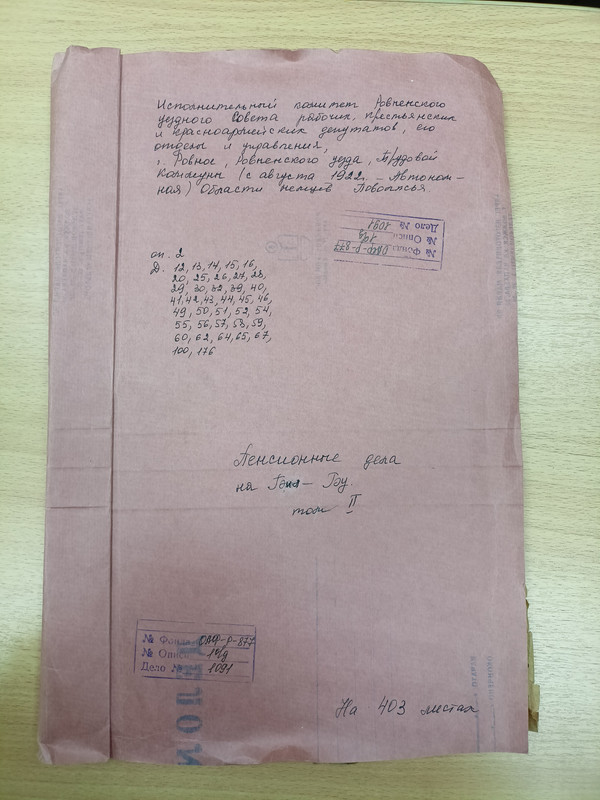 Исполнительный комитет Ровненского
уездного Совета рабочих, крестьянских
и красноармейских депутатов, его
отделы и управления,
г. Ровное, Ровненского уезда, Трудовой
Коммуны (с августа 1922г. - Автоном-
ная) Области немцев Поволжья.
№ Фонда ОАФ-Р-877
№ Описи 1н/д
Дело № 1091
оп. 2
Д. 12, 13, 14, 15, 16,
20, 25, 26, 27, 28,
29, 30, 32, 39, 40,
41, 42, 43, 44, 45, 46,
49, 50, 51, 52, 54,
55, 56, 57, 58, 59,
60, 62, 64, 65, 67,
100, 176
Пенсионные дела
на - Бу.
том II
№ Фонда ОАФ-Р-877
№ Описи 1н/д
Дело № 1091
На 403 листах